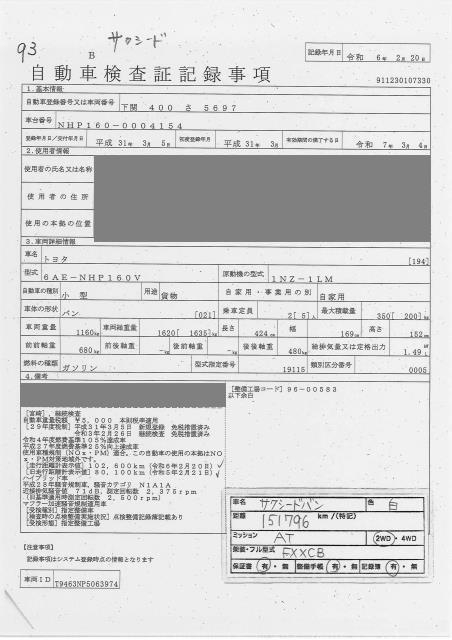 93
サクシード
B
自動車検査証記録事項
記録年月日 令和 6年 2月 20日
911230107330
1.基本情報
自動車登録番号又は車両番号 下関 400 さ 5697
車台番号 NHP160-0004154
登録年月日/交付年月日 平成 31年 3月 5日 初度登録年月 平成 31年 3月 有効期間の満了する日 令和 7年 3月 4日
2.使用者情報
使用者の氏名又は名称
使用者の住所
使用の本拠の位置
3.車両詳細情報
車名 トヨタ [194]
型式 6AE-NHP160V 原動機の型式 1NZ-1LM
自動車の種別 小型 用途 貨物 自家用・事業用の別 自家用
車体の形状 バン [021] 乗車定員 2[ 5]人 最大積載量 350[ 200]kg
車両重量 1160kg 車両総重量 1620[ 1635]kg 長さ 424cm 幅 169cm 高さ 152cm
前前軸重 680kg 前後軸重 -kg 後前軸重 -kg 後後軸重 480kg 総排気量又は定格出力 1.49L
燃料の種類 ガソリン 型式指定番号 19115 類別区分番号 0005
4.備考
[整備工場コード] 96-00583
以下余白
[宮崎]、継続検査
自動車重量税額 ¥5,000 本則税率適用
[29年度税制] 平成31年3月5日 新規登録 免税措置済み
令和3年2月26日 継続検査 免税措置済み
令和4年度燃費基準105%達成車
平成27年度燃費基準25%向上達成車
使用車種規制(NOx・PM)適合、この自動車の使用の本拠はNO
x・PM対策地域外です。
[走行距離計表示値] 102,600km (令和6年2月20日)
[旧走行距離計表示値] 80,100km (令和5年2月21日)
ハイブリッド車
平成28年騒音規制車、騒音カテゴリ N1A1A
近接排気騒音値 71dB、測定回転数 2,375rpm
(旧基準適用時測定回転数 2,500rpm)
マフラー加速騒音規制適用車
[受検種別] 指定整備車
[検査時の点検整備実施状況] 点検整備記録簿記載あり
[受検形態] 指定整備工場
車名 サクシードバン 色 白
距離 151796 km/(特記)
ミッション AT 2WD・4WD
架装・フル型式 EXXCB
保証書 有・無 整備手帳 有・無 記録簿 有・無
[注意事項]
記録事項はシステム登録時点の情報となります
車両ID T9463NP5063974